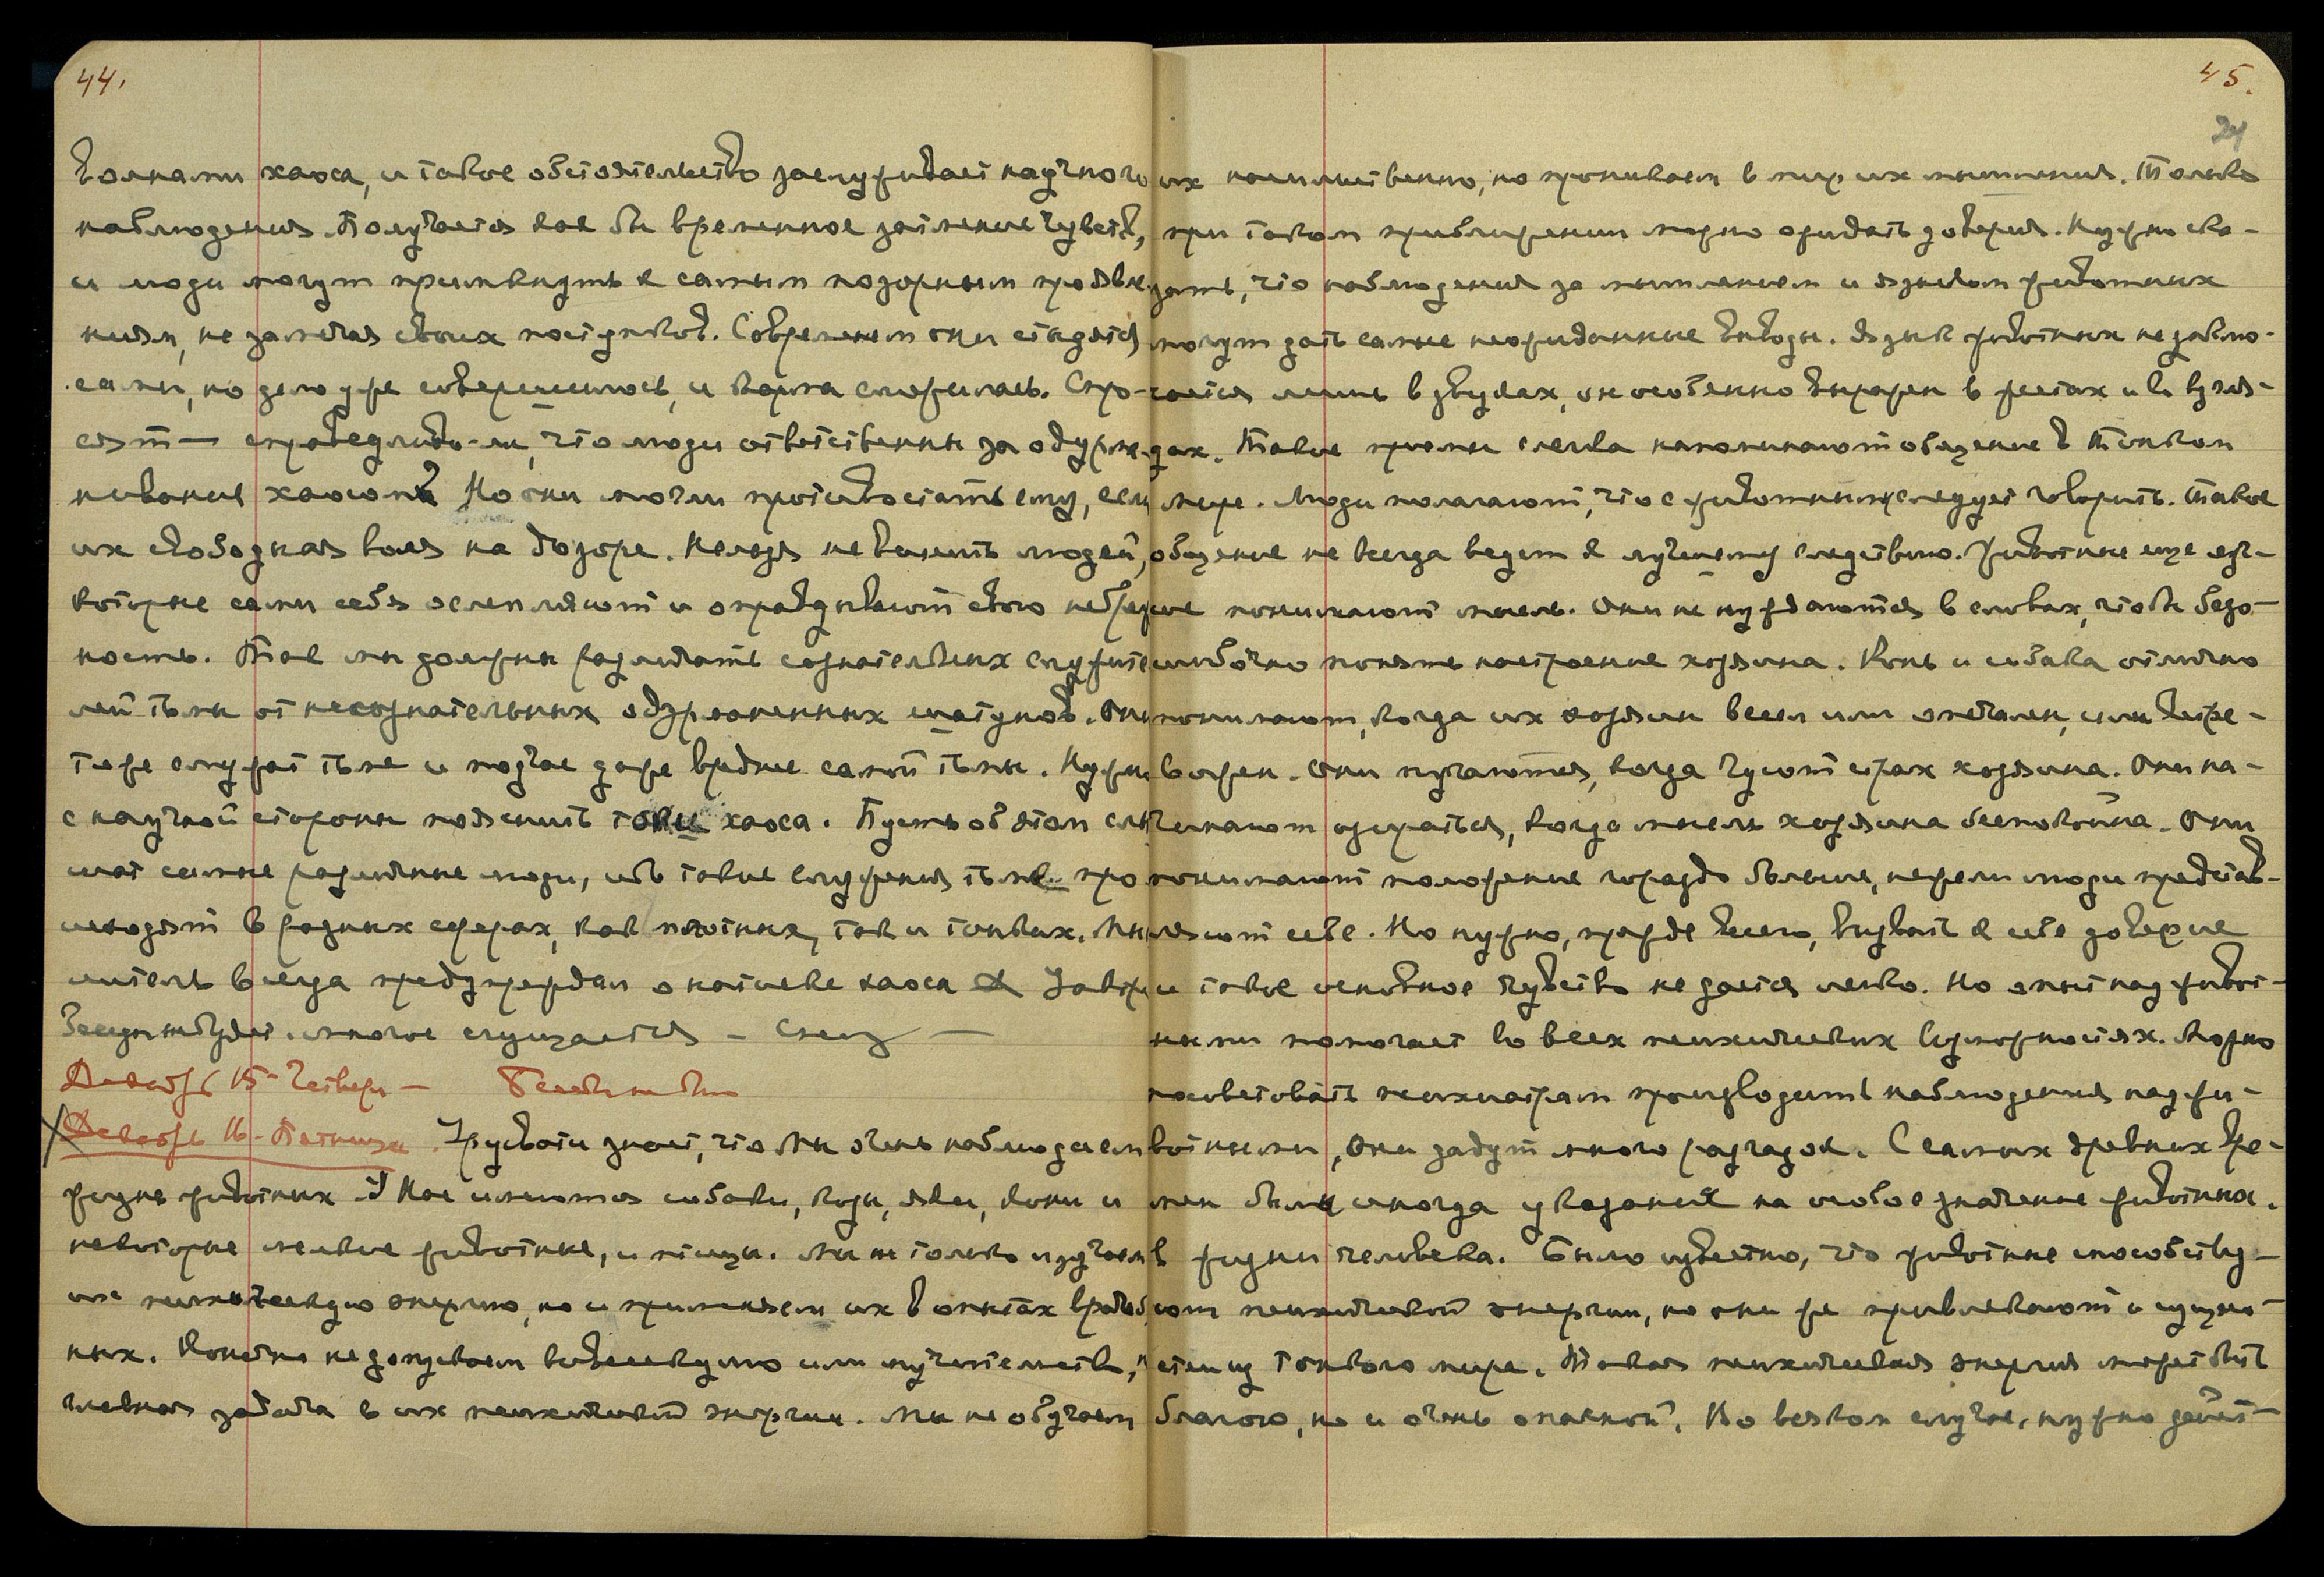 44.
волнами хаоса, и такое обстоятельство заслуживает научного
наблюдения. Получается как бы временное затмение чувств,
и люди могут примкнуть к самым позорным проявле-
ниям, не замечая своих поступков. Со временем они стыдятся
сами, но дело уже совершилось, и карма сложилась. Спро-
сят — справедливо-ли, что люди ответственны за одурма-
нивание хаосом? Но они могли противостать ему, если
их свободная воля на дозоре. Нельзя не винить людей,
которые сами себя ослепляют и оправдывают свою небреж
ность. Так мы должны различать сознательных служите
лей тьмы от несознательных одурманенных шатунов. Они
тоже служат тьме и подчас даже вреднее самой тьмы. Нужно
с научной стороны пояснить токи хаоса. Пусть об этом слы
шат самые различные люди, ибо такие служения тьме про
исходят в разных сферах, как плотных, так и тонких. Мы
слитель всегда предупреждал о натиске хаоса
многое сгущается — спешу —
Декабрь 15 - Четверг —
Декабрь 16 - Пятница. Урусвати знает, что Мы очень наблюдаем
жизнь животных. У Нас имеются собаки, козы, яки, кони и
некоторые мелкие животные, и птицы. Мы не только изучаем
их психическую энергию, но и применяем их в опытах врачеб
ных. Конечно не допускаем вивисекцию или мучительств,
главная задача в их психической энергии. Мы не обучаем
45.
24
их насильственно, но проникаем в мир их мышления. Только
при таком приближении можно ожидать доверия. Нужно ска-
зать, что наблюдения за мышлением и языком животных
могут дать самые неожиданные выводы. Язык животных не заклю-
чается лишь в звуках, он особенно выражен в жестах и во взгля-
дах. Такие приемы языка напоминают общение в Тонком
мире. Люди полагают, что с животными следует говорить. Такое
общение не всегда ведет к лучшему следствию. Животные еще луч-
ше понимают мысль. Они не нуждаются в словах, чтобы безо-
шибочно понять настроение хозяина. Конь и собака отлично
понимают, когда их хозяин весел или опечален, или встре-
вожен. Они пугаются, когда чуют страх хозяина. Они на-
чинают озираться, когда мысль хозяина беспокойна. Они
понимают положение гораздо больше, нежели люди представ-
ляют себе. Но нужно, прежде всего, вызвать к себе доверие
и такое основное чувство не дается легко. Но опыт над живот-
ными помогает во всех психических возможностях. Можно
посоветовать психиатрам производить наблюдения над жи-
вотными, они дадут много разгадок. С самых древних вре-
мен были иногда указания на особое значение животных
в жизни человека. Было известно, что животные способству-
ют психической энергии, но они же привлекают и сущно-
стей из Тонкого мира. Такая психическая энергия может быть
благою, но и очень опасной. Во всяком случае, нужно дейст-